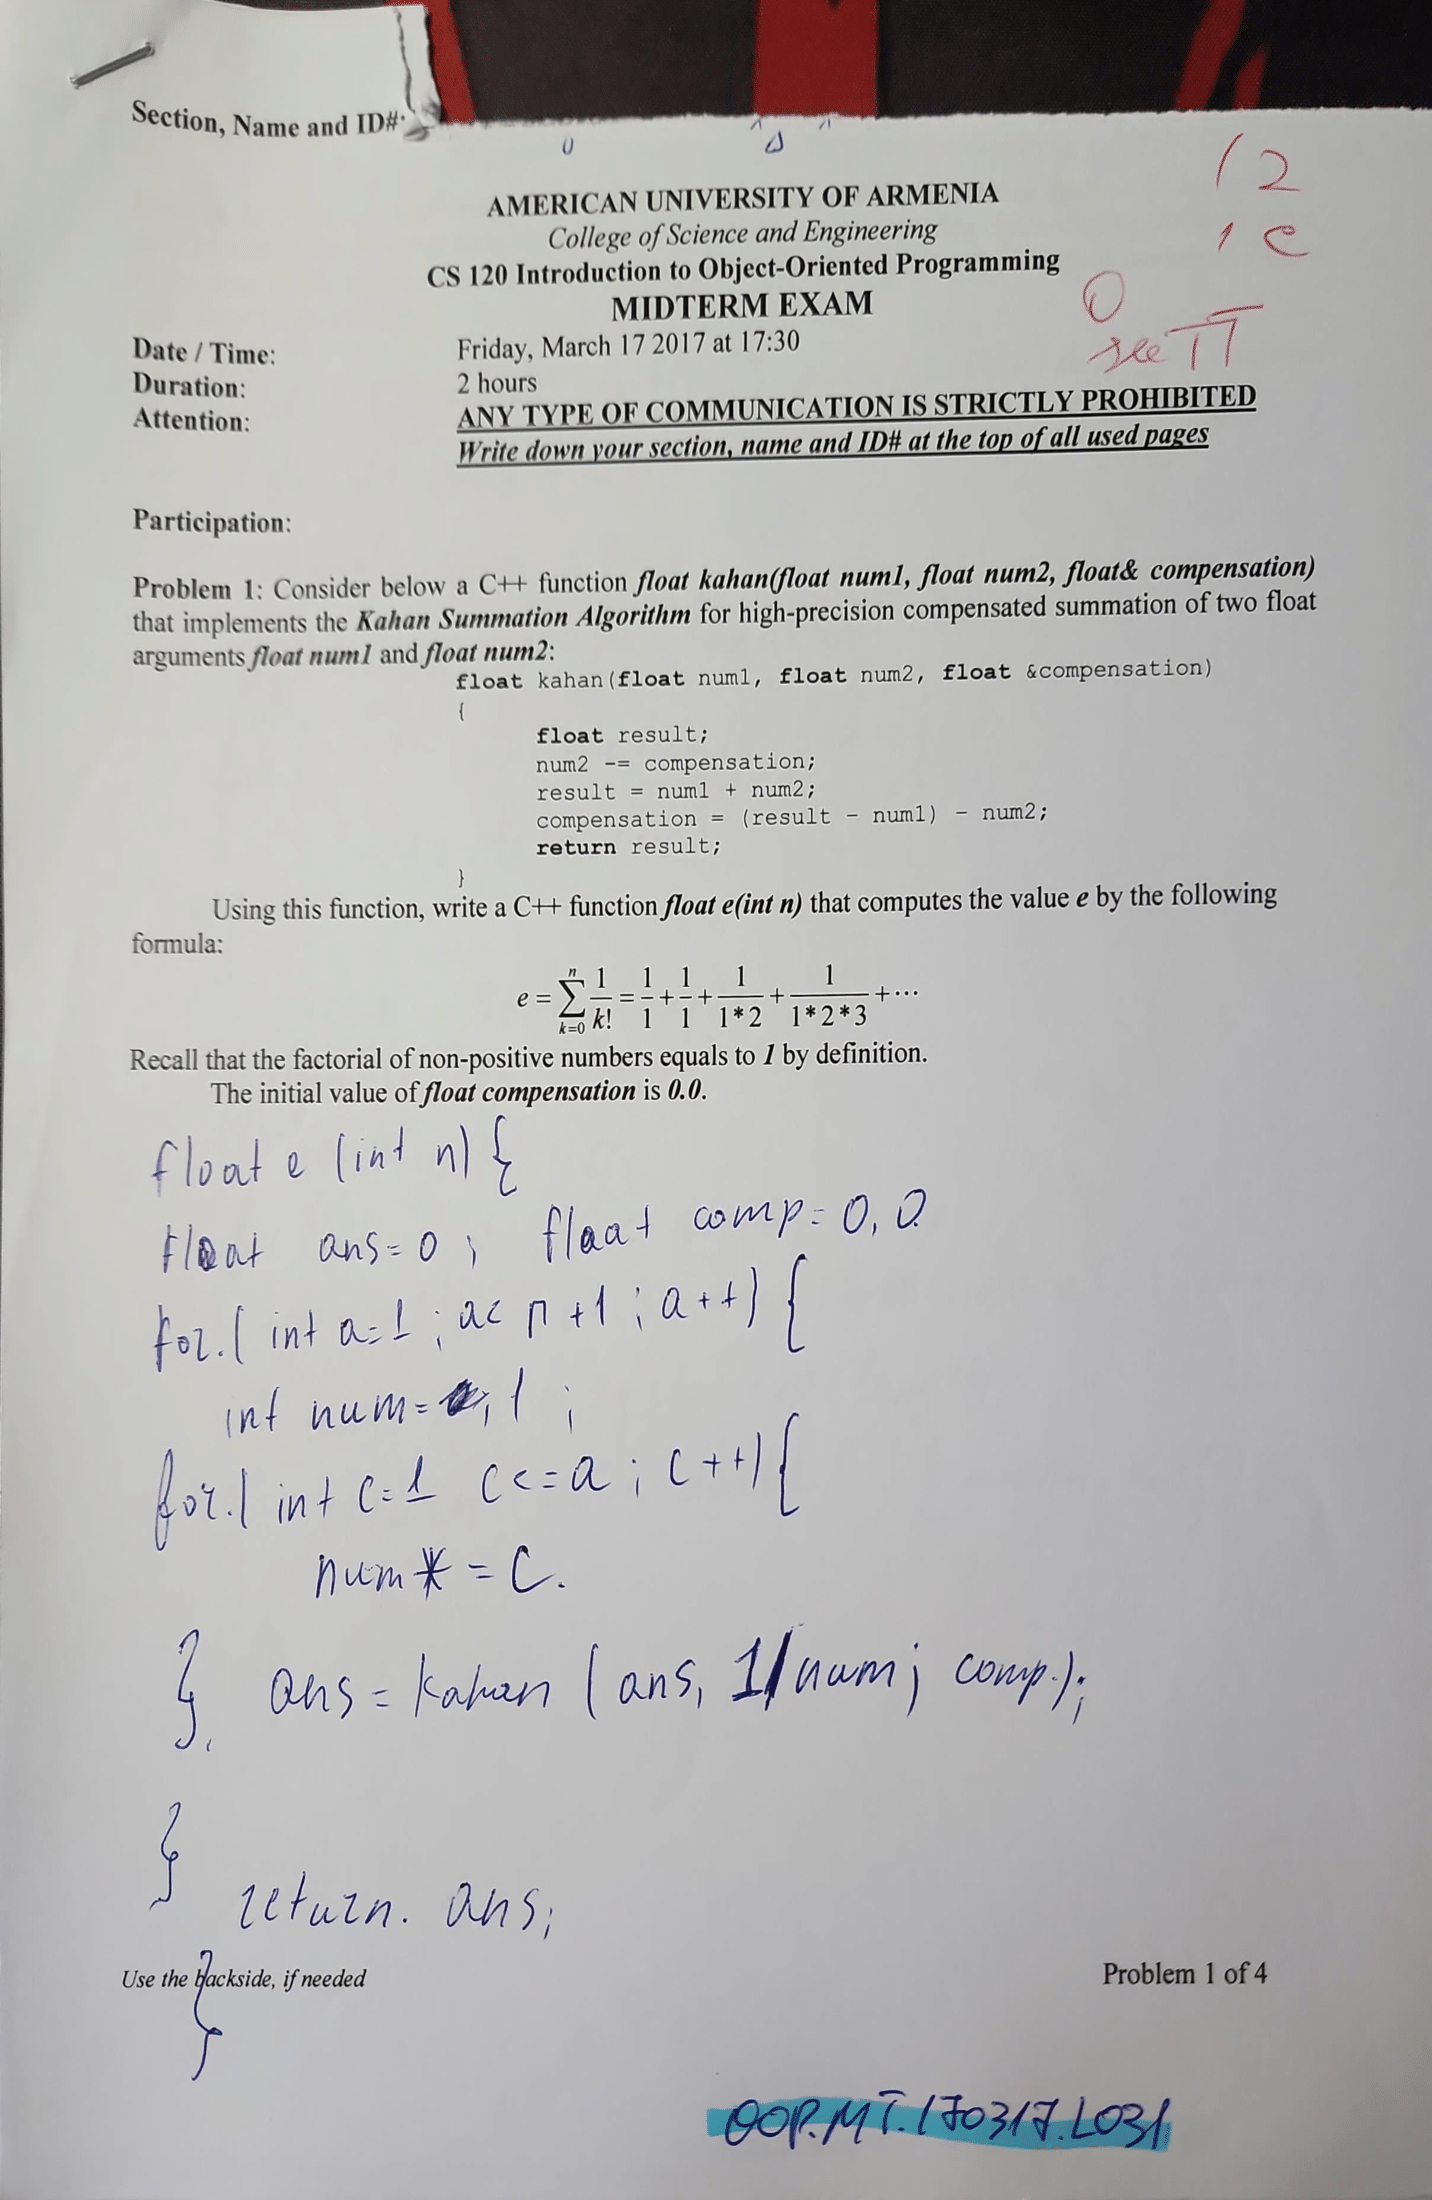 Section, Name and ID#
12
1 e
AMERICAN UNIVERSITY OF ARMENIA
College of Science and Engineering
CS 120 Introduction to Object-Oriented Programming
MIDTERM EXAM
0
see
Date / Time: Friday, March 17 2017 at 17:30
Duration: 2 hours
Attention: ANY TYPE OF COMMUNICATION IS STRICTLY PROHIBITED
Write down your section, name and ID# at the top of all used pages
Participation:
Problem 1: Consider below a C++ function float kahan(float num1, float num2, float& compensation)
that implements the Kahan Summation Algorithm for high-precision compensated summation of two float
arguments float num1 and float num2:
float kahan(float num1, float num2, float &compensation)
{
float result;
num2 -= compensation;
result = num1 + num2;
compensation = (result - num1) - num2;
return result;
}
Using this function, write a C++ function float e(int n) that computes the value e by the following
formula:
e = ∑ₖ₌₀ⁿ 1/k! = 1/1 + 1/1 + 1/1*2 + 1/1*2*3 + ⋯
Recall that the factorial of non-positive numbers equals to 1 by definition.
The initial value of float compensation is 0.0.
float e (int n) {
float ans=0; float comp=0,0
for.( int a=1; a< n+1; a++) {
int num= 1;
for.( int c=1 c<=a; c++) {
num*=c.
} ans=kahan (ans, 1/num; comp.);
}
return. ans;
}
Use the backside, if needed
Problem 1 of 4
OOP.MT.170317.L031